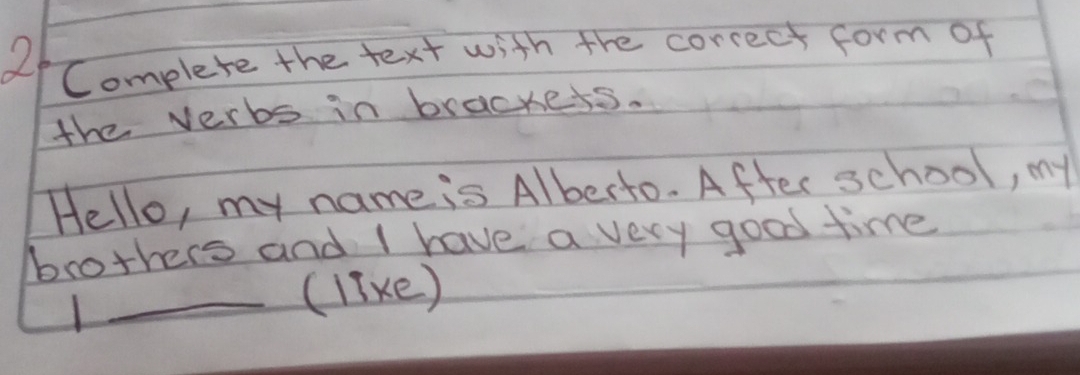 2 Complete the text with the correct form of
the verbs in brackets.
Hello, my name is Alberto. After school, my
brothers and I have a very good time
I ______ (like)